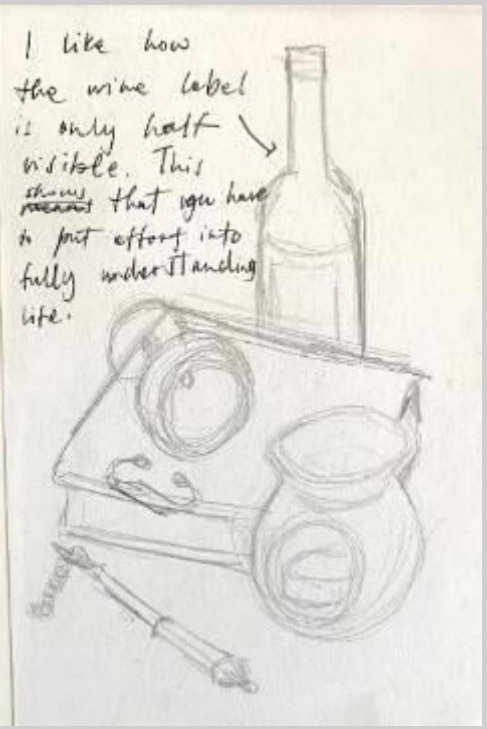 I like how
the wine label
is only half
visible. This
shows means that you have
to put effort into
fully understanding
life.